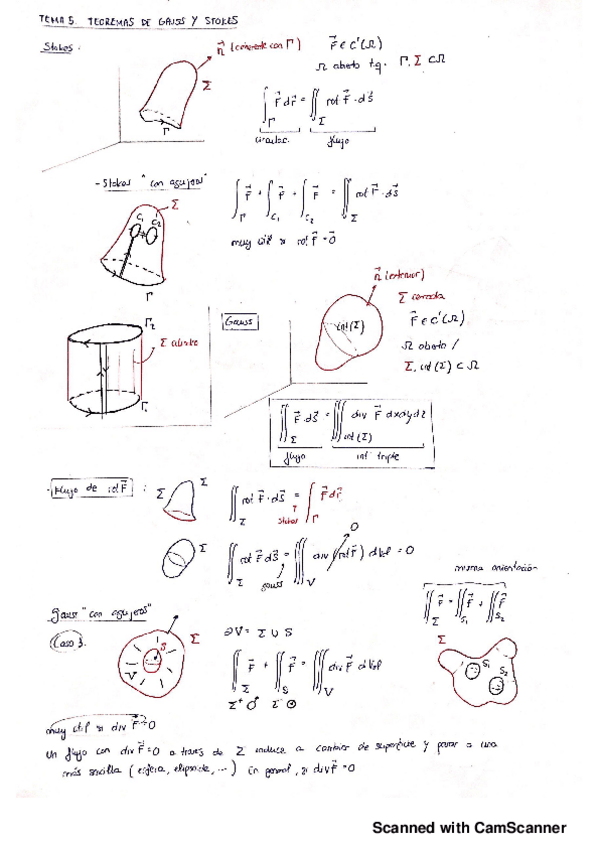 TEMA 5. TEOREMAS DE GAUSS Y STOKES
Stokes:
n⃗ (coherente con Γ)
F⃗ ∈ C¹(Ω)
Ω abierto t.q. Γ, Σ ⊂ Ω
Σ
Γ
∫_Γ F⃗ dr⃗ = ∬_Σ rot F⃗ · dS⃗
circulac. flujo
- Stokes "con agujeros"
Σ
C₁ C₂
Γ
∫_Γ F⃗ + ∫_C₁ F⃗ + ∫_C₂ F⃗ = ∬_Σ rot F⃗ · dS⃗
muy útil si rot F⃗ = 0
Γ₂
Σ abierta
Γ₁
Gauss
n⃗ (exterior)
int(Σ)
Σ cerrada
F⃗ ∈ C¹(Ω)
Ω abierto /
Σ, int(Σ) ⊂ Ω
∬_Σ F⃗ · dS⃗ = ∭_int(Σ) div F⃗ dxdydz
flujo int. triple
- Flujo de rot F⃗ :
Σ Σ
∬_Σ rot F⃗ · dS⃗ = ∫_Γ F⃗ dr⃗
Stokes
Σ
∬_Σ rot F⃗ dS⃗ = ∭_V div (rot F⃗) dVol = 0
0
gauss
misma orientación
∬_Σ F⃗ = ∬_S₁ F⃗ + ∬_S₂ F⃗
Gauss "con agujeros"
Caso 3.
S
V
Σ
∂V = Σ ∪ S
∬_Σ F⃗ + ∬_S F⃗ = ∭_V div F⃗ dVol
Σ
S₁
S₂
muy útil si div F⃗ = 0
Un flujo con div F⃗ = 0 a través de Σ induce a cambiar de superficie y pasar a una
más sencilla (esfera, elipsoide, ...) En general, si div F⃗ = 0
Scanned with CamScanner